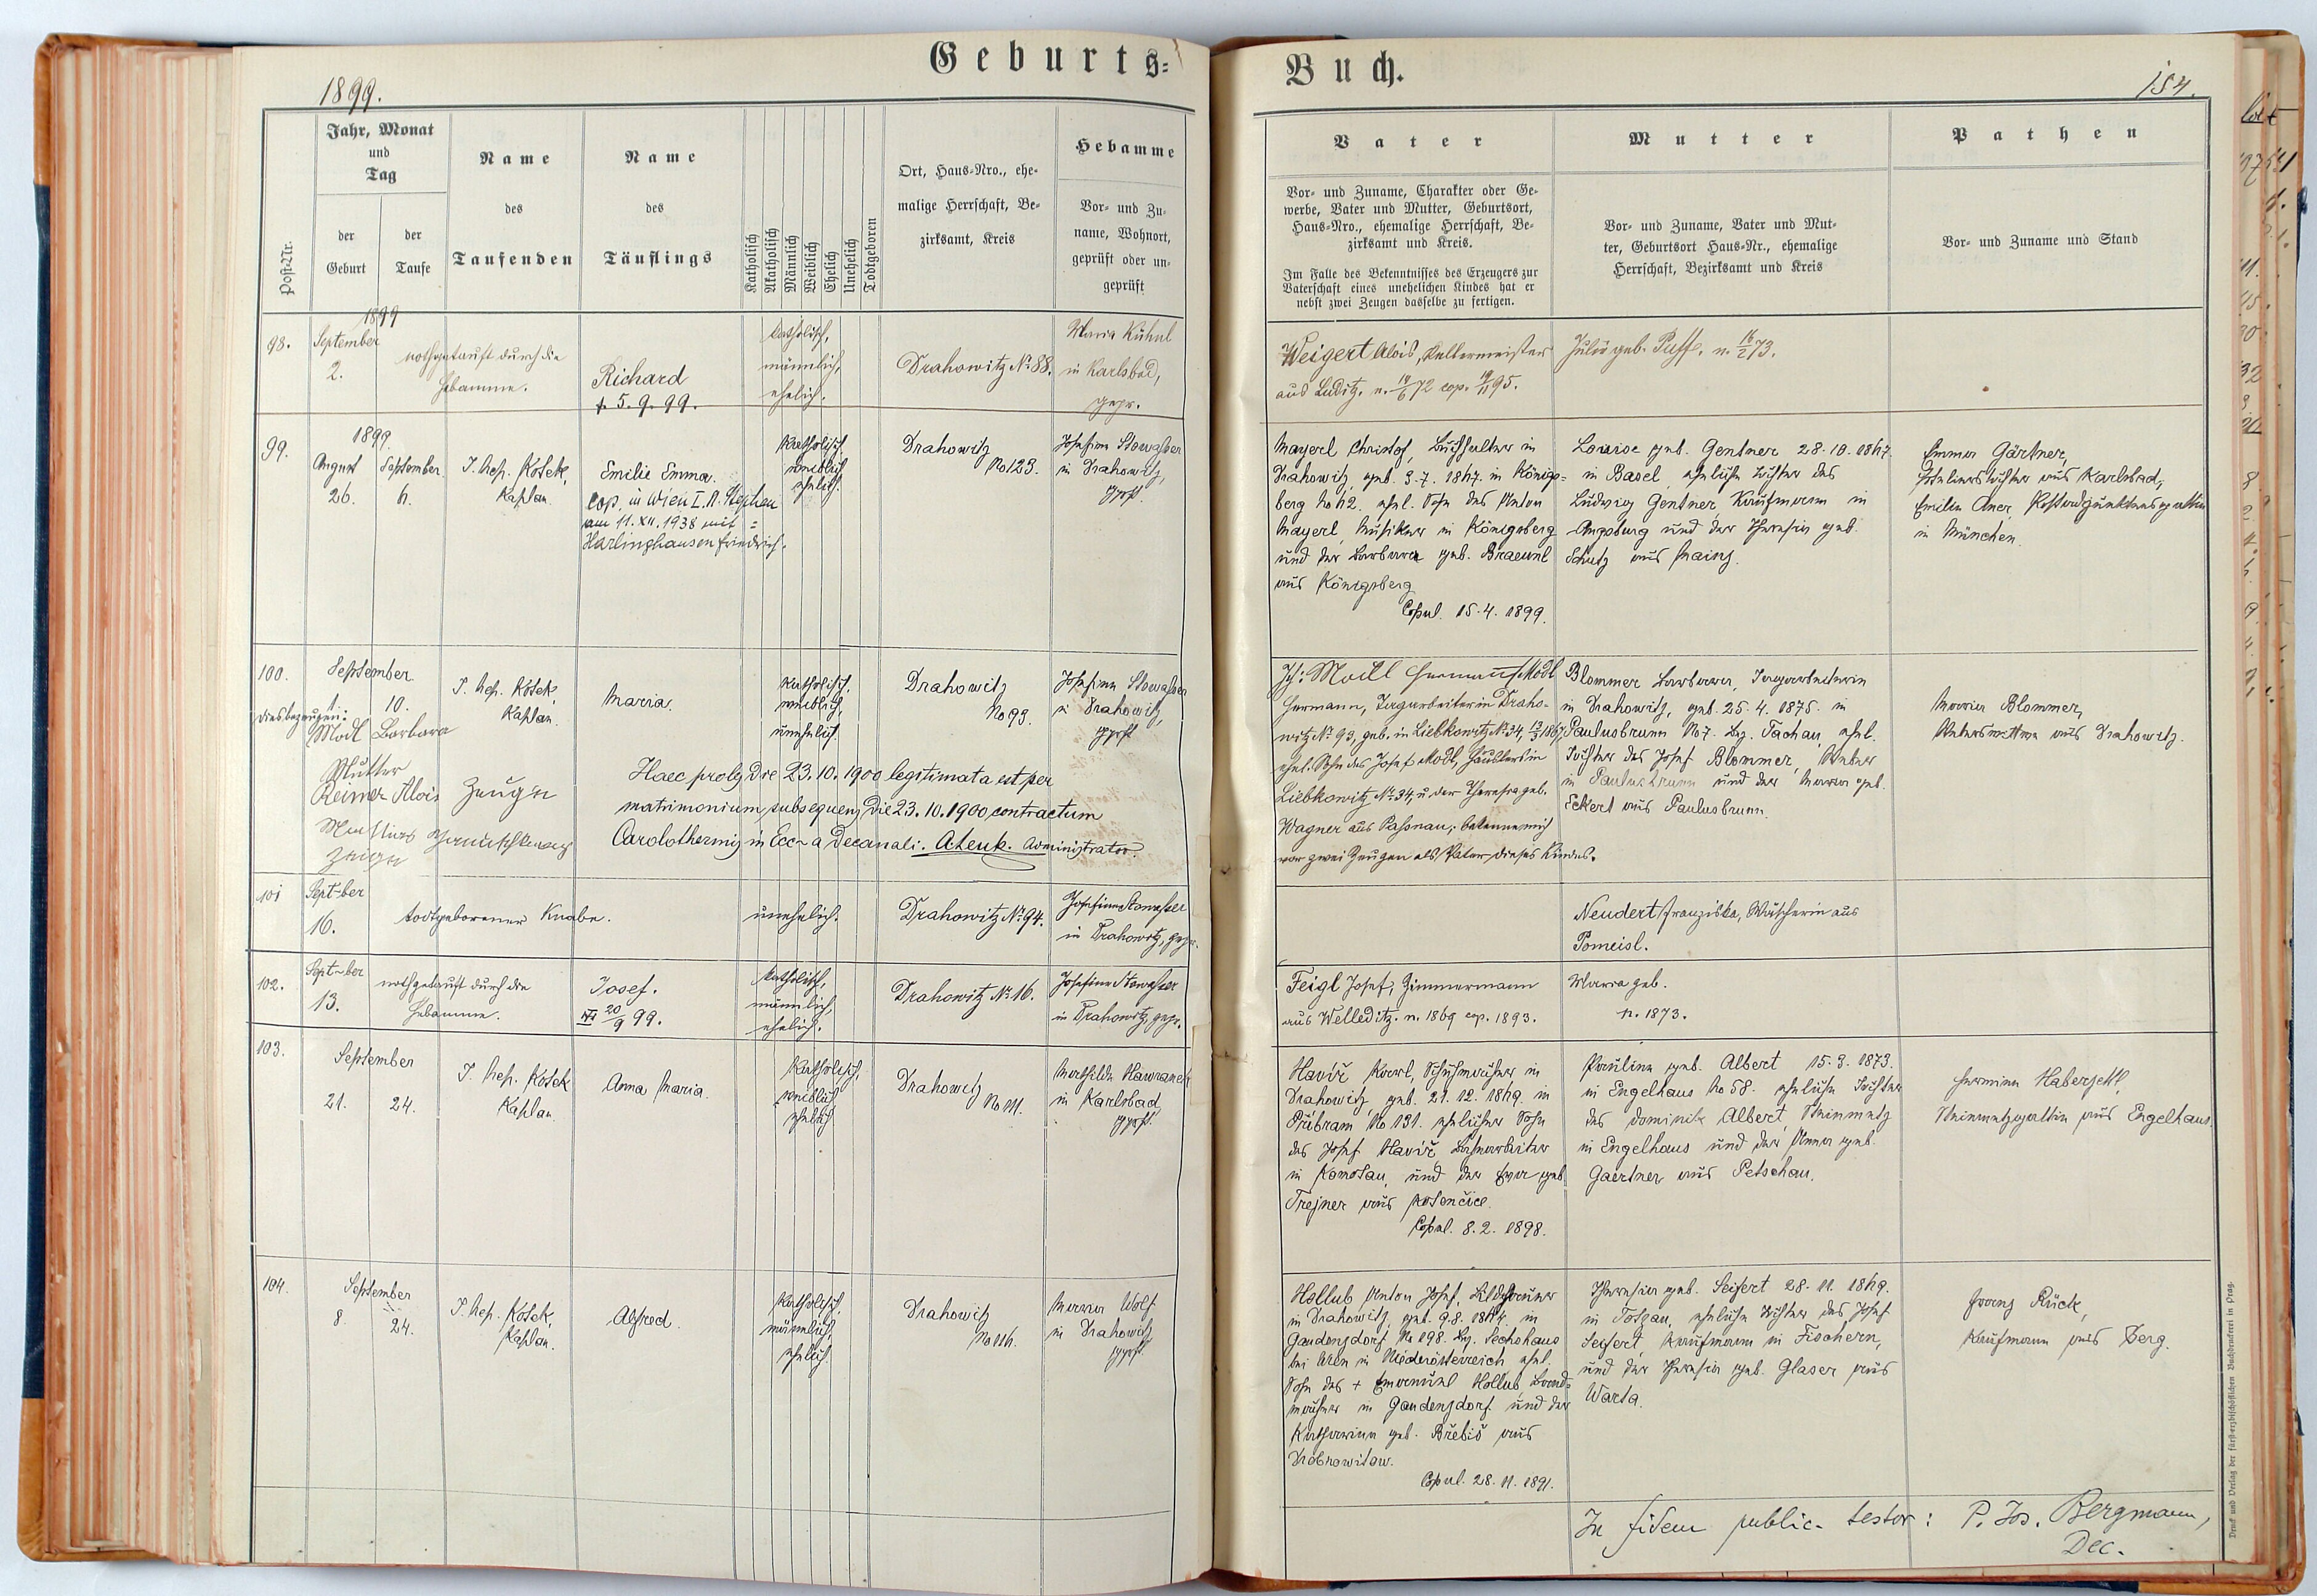 Geburts=
1899.
Post-Nr.
Jahr, Monat
und
Tag
der
Geburt
der
Taufe
Name
des
Taufenden
Name
des
Täuflings
Katholisch
Akatholisch
Männlich
Weiblich
Ehelich
Unehelich
Todtgeboren
Ort, Haus=Nro., ehe=
malige Herrschaft, Be=
zirksamt, Kreis
Hebamme
Vor= und Zu=
name, Wohnort,
geprüft oder un=
geprüft
98.
1899
September
2.
nothgetauft durch die
Hebamme.
Richard
† 5. 9. 99.
katholisch,
männlich,
ehelich.
Drahowitz No 88.
Maria Kühnl
in Karlsbad,
gepr.
99.
1899.
August September
26. 4.
J. Nep. Kosek,
Kaplan.
Emilie Emma.
Cop. in Wien I. St. Stephan
am 11. XII. 1938 mit =
Harlinghausen Friedrich.
Katholisch
weiblich
ehelich.
Drahowitz
No 123.
Josefine Stowasser
in Drahowitz,
gprft.
100.
September
1. 10.
J. Nep. Kosek,
Kaplan.
Maria.
Katholisch,
weiblich,
unehelich.
Drahowitz
No 93.
Josefine Stowasser
in Drahowitz,
gprft
dies bezeugen:
Modl Barbara
Mutter
Reimer Alois Zeuge
Zeuge
Haec proles die 23. 10. 1900 legitimata est per
matrimonium subsequens die 23. 10. 1900 contractum
Carolothermis in Eccl-a Decanali. Administrator.
101
Sept-ber
16.
todtgeborener Knabe.
unehelich.
Drahowitz No 94.
Josefine Stowasser
in Drahowitz, gepr.
102.
Sept-ber
13.
nothgetauft durch die
Hebamme.
Josef.
20/9 99.
katholisch,
männlich,
ehelich.
Drahowitz No 16.
Josefine Stowasser
in Drahowitz, gepr.
103.
September
21. 24.
J. Nep. Kosek
Kaplan
Anna Maria.
Katholisch,
weiblich
ehelich
Drahowitz
No 111.
Mathilde Hawranek
in Karlsbad
gprft.
104.
September
8 24.
J. Nep. Kosek,
Kaplan.
Alfred.
Katholisch,
männlich,
ehelich.
Drahowitz
No 116.
Maria Wolf
in Drahowitz
gprft.
Buch.
184.
Vater
Vor= und Zuname, Charakter oder Ge=
werbe, Vater und Mutter, Geburtsort,
Haus=Nro., ehemalige Herrschaft, Be=
zirksamt und Kreis.
Im Falle des Bekenntnisses des Erzeugers zur
Vaterschaft eines unehelichen Kindes hat er
nebst zwei Zeugen dasselbe zu fertigen.
Mutter
Vor= und Zuname, Vater und Mut=
ter, Geburtsort Haus=Nr., ehemalige
Herrschaft, Bezirksamt und Kreis
Pathen
Vor= und Zuname und Stand
Weigert Alois, Kellermeister
aus Luditz. n. 72 cop. 95.
Julie geb. Puff. n. 16/2 73.
Mayerl Christof, Buchhalter in
Drahowitz, geb. 3. 7. 1847. in Königs=
berg No 42. ehel. Sohn des Anton
Mayerl, Musiker in Königsberg
und der Barbara geb. Braeunl
aus Königsberg
Copul. 15. 4. 1899.
Louise geb. Gentner 28. 10. 1847
in Basel, eheliche Tochter des
Ludwig Gentner, Kaufmann in
Augsburg und der Theresia geb.
Schutz aus Mainz.
Emma Gärtner,
aus Karlsbad,
Emilie
in München.
Ich: Modl Hermann Modl
Hermann, Tagarbeiter in Draho=
witz No 93, geb. in Liebkowitz No 34, 1867
ehel. Sohn des Josef Modl, Häuslers in
Liebkowitz No 34, u. der Theresia geb.
Wagner aus Passnau, bekenne mich
vor zwei Zeugen als Vater dieses Kindes.
Blommer Barbara, Tagarbeiterin
in Drahowitz, geb. 25. 4. 1875. in
Paulusbrunn No 7. Bez. Tachau, ehel.
Tochter des Josef Blommer, Weber
in Paulusbrunn und der Maria geb.
Eckert aus Paulusbrunn.
Maria Blommer,
Weberswittwe aus Drahowitz.
Neudert Franziska, Wäscherin aus
Pomeisl.
Feigl Josef, Zimmermann
aus Welleditz. n. 1869 cop. 1893.
Maria geb.
n. 1873.
Haviř Karl, Schuhmacher in
Drahowitz, geb. 21. 12. 1869. in
Přibram No 131. ehelicher Sohn
des Josef Haviř Bahnarbeiter
in Komotau, und der Eva geb
Trejner aus
Copul. 8. 2. 1898.
Pauline geb. Albert 15. 3. 1873.
in Engelhaus No 58. eheliche Tochter
des Dominik Albert, Steinmetz
in Engelhaus und der Anna geb.
Gaertner aus Petschau.
Hermine Haberzettl,
Steinmetzgattin aus Engelhaus.
Hollub Anton Josef, Bildhauer
in Drahowitz, geb. 9. 8. in
Gaudenzdorf No 198. Bez. Sechshaus
bei Wien in Niederösterreich ehel.
Sohn des + Emanuel Hollub, Band=
macher in Gaudenzdorf und der
Katharina geb. Břebiš aus
Copul. 28. 11. 1891.
Theresia geb. Seifert 28. 11. 1869.
in Totzau, eheliche Tochter des Josef
Seifert, Kaufmann in Fischern,
und der Theresia geb. Glaser aus
Warta.
Franz Rück,
Kaufmann aus Berg.
In fidem public- testor: P. Jos. Bergmann,
Dec.
Druck und Verlag der fürst-erzbischöflichen Buchdruckerei in Prag.